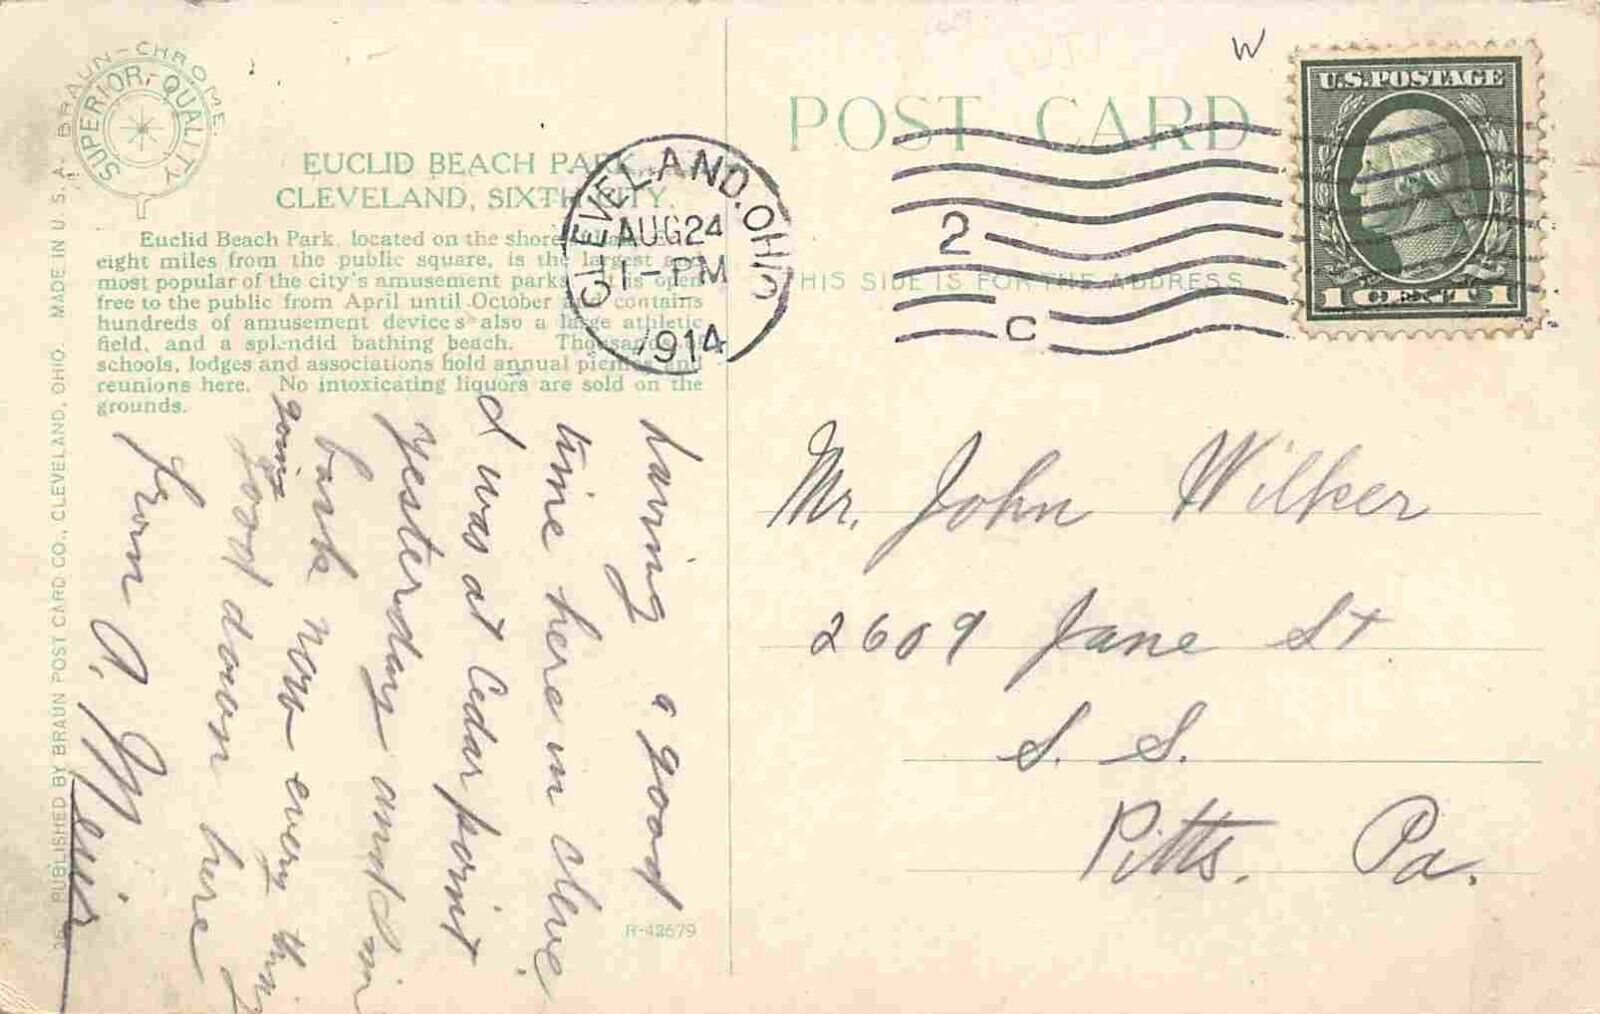 BRAUN-CHROME.
SUPERIOR-QUALITY
EUCLID BEACH PARK,
CLEVELAND, SIXTH CITY.
Euclid Beach Park, located on the shore
eight miles from the public square, is the largest and
most popular of the city's amusement parks. It is open
free to the public from April until October and contains
hundreds of amusement devices also a large athletic
field, and a splendid bathing beach. Thousands of
schools, lodges and associations hold annual picnics and
reunions here. No intoxicating liquors are sold on the
grounds.
PUBLISHED BY BRAUN POST CARD CO., CLEVELAND, OHIO. MADE IN U. S. A.
having a good
time here in Cleve
I was at Cedar point
yesterday and I'm
back now every thing
going
good down here
from A. Meir
R-42679
CLEVELAND, OHIO
AUG 24
1-PM
1914
2
C
W
U.S. POSTAGE
1 CENT 1
POST CARD
THIS SIDE IS FOR THE ADDRESS
Mr. John Wilker
2609 Jane St
S. S.
Pitts. Pa.